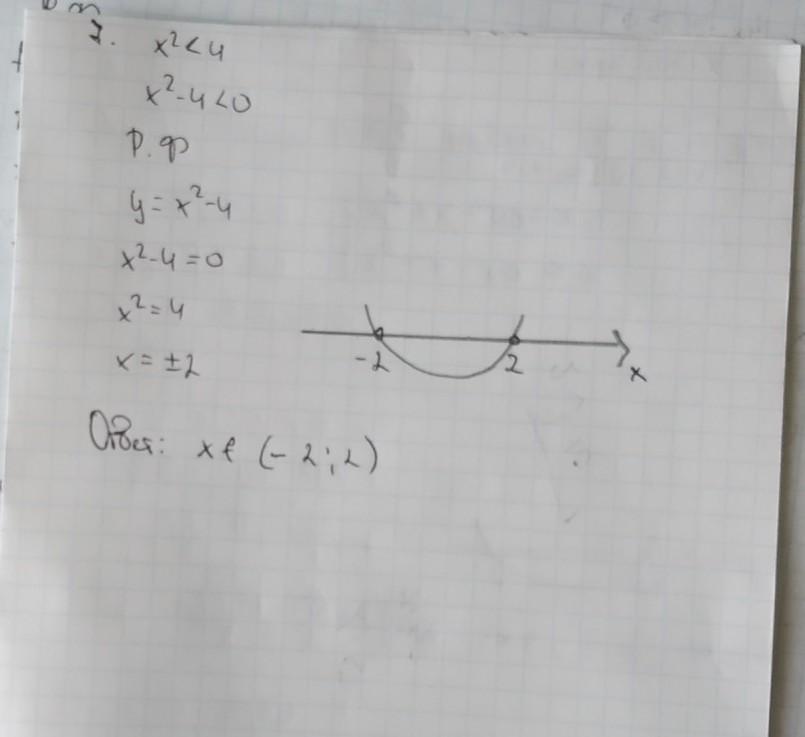 7. x²<4
x²-4<0
Р.ф
y = x²-4
x²-4=0
x²=4
x = ±2
-2 2 x
Ответ: x ∈ (-2;2)